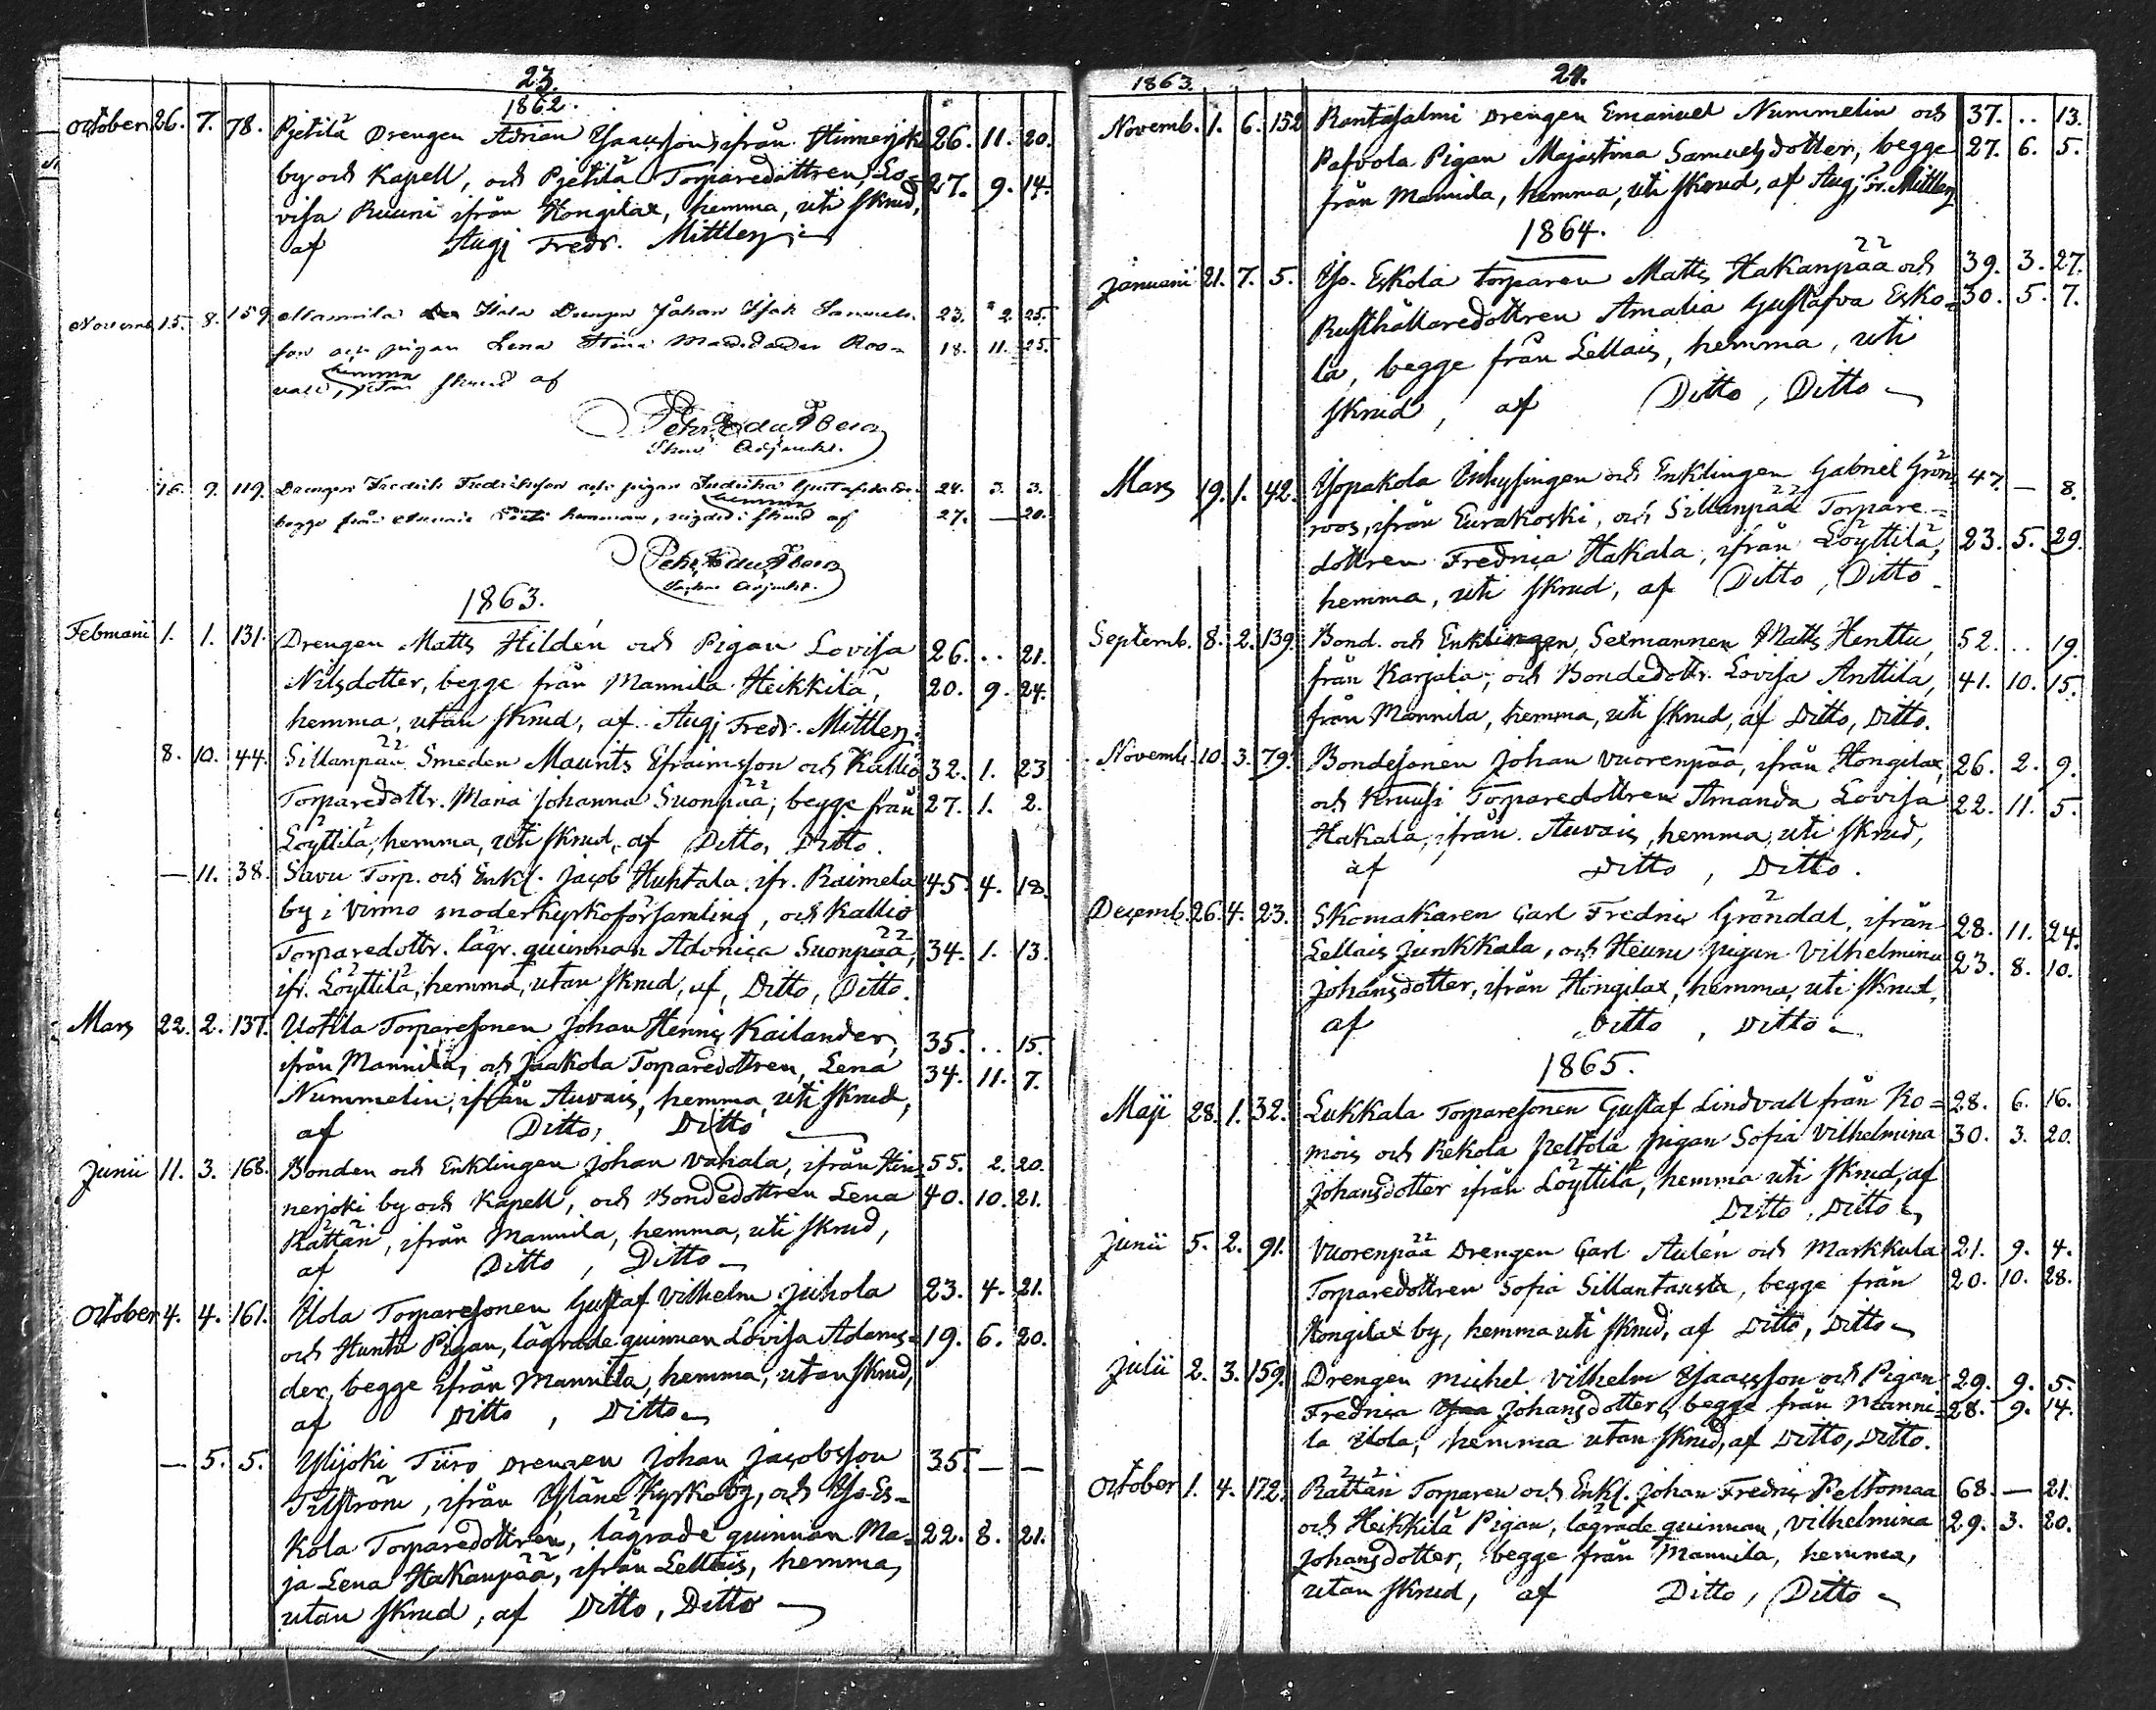 23.
1862.
October 26. 7. 78. Pjetilä Drengen Adrian Ysaacsson, ifrån Hinnerjoki 26. 11. 20.
by och Kapell, och Pjetilä Torparedottren, Lo= 27. 9. 14.
visa Ruuni ifrån Hongilax, hemma, uti skrud,
af Augj Fredr. Mittler
Novemb. 15. 8. 159. Mannila Drengen Johan Isak Samuels- 23. 2. 25.
son och pigan Lena Stina Roo- 18. 11. 25.
hemma
utan skrud af
Adjunkt.
16. 9. 119. Drengen Fredrik Fredriksson och pigan Fredrika Gustafsdotter 24. 3. 3.
hemma
begge från skrud af 27. — 20.
Adjunkt.
1863.
Februarii 1. 1. 131. Drengen Matts Hildén och Pigan Lovisa 26. .. 21.
Nilsdotter, begge från Mannila Heikkilä, 20. 9. 24.
hemma, utan skrud, af Augj Fredr. Mittler.
8. 10. 44. Sillanpää Smeden Maurits Efraimsson och Kallio 32. 1. 23
Torparedottr. Maria Johanna Suonpää, begge från 27. 1. 2.
Löyttilä, hemma, uti skrud, af Ditto, Ditto.
— 11. 38. Savu Torp. och Enkl. Jacob Huhtala, ifr. Raimela 45. 4. 18.
by i Virmo moderkyrkoförsamling, och Kallio
Torparedottr. lägr. quinnan Adonica Suonpää, 34. 1. 13.
ifr. Löyttilä, hemma, utan skrud, af, Ditto, Ditto.
Mars 22. 2. 137. Uotila Torparesonen Johan Henric Kailander, 35. .. 15.
ifrån Mannila, och Jaakola Torparedottren, Lena 34. 11. 7.
Nummelin, ifrån Auvais, hemma, uti skrud,
af Ditto, Ditto
Junii 11. 3. 168. Bonden och Enklingen Johan Vahala, ifrån Hin= 55. 2. 20.
nerjoki by och Kapell, och Bondedottren Lena 40. 10. 21.
Rättäri, ifrån Mannila, hemma, uti skrud,
af Ditto, Ditto
October 4. 4. 161. Uola Torparesonen Gustaf Vilhelm Juhola 23. 4. 21.
och Huntu Pigan, lägrade quinnan Lovisa Adams= 19. 6. 20.
der, begge ifrån Mannila, hemma, utan skrud,
af Ditto, Ditto
— 5. 5. Ylijoki Tiiro Drengen Johan Jacobsson 35. — —
Tilström, ifrån Yläne Kyrkoby, och Yso-Es=
kola Torparedottren, lägrade quinnan Ma= 22. 8. 21.
ja Lena Hakanpää, ifrån Lellais, hemma,
utan skrud, af Ditto, Ditto
1863. 24.
Novemb. 1. 6. 152 Rantasalmi Drengen Emanuel Nummelin och 37. .. 13.
Pafvola Pigan Majastina Samuelsdotter, begge 27. 6. 5.
från Mannila, hemma, uti skrud, af Augj Fr. Mittler
1864.
Januarii 21. 7. 5. Yso-Eskola torparen Matts Hakanpää och 39. 3. 27.
Rusthållaredottren Amalia Gustafva Esko= 30. 5. 7.
la, begge från Lellais, hemma, uti
skrud, af Ditto, Ditto
Mars 19. 1. 42. Ysopakola Inhysingen och Enklingen Gabriel Grön= 47. — 8.
roos, ifrån Eurakoski, och Sillanpää Torpare=
dottren Fredrica Hakala, ifrån Löyttilä, 23. 5. 29.
hemma, uti skrud, af Ditto, Ditto
Septemb. 8. 2. 139. Bond. och Enklingen, Sexmannen Matts Henttu, 52. .. 19.
från Karjala, och Bondedottr. Lovisa Anttila, 41. 10. 15.
från Mannila, hemma, uti skrud, af Ditto, Ditto.
Novemb. 10. 3. 79. Bondesonen Johan Vuorenpää, ifrån Hongilax, 26. 2. 9.
och Kruusi Torparedottren Amanda Lovisa 22. 11. 5.
Hakala, ifrån Auvais, hemma, uti skrud,
af Ditto, Ditto.
Decemb. 26. 4. 23. Skomakaren Carl Fredric Gröndal, ifrån 28. 11. 24.
Lellais Junkkala, och Heunu pigan Vilhelmina 23. 8. 10.
Johansdotter, ifrån Hongilax, hemma, uti skrud,
af Ditto, Ditto
1865.
Maji 28. 1. 32. Lukkala Torparesonen Gustaf Lindvall från Ko= 28. 6. 16.
mois och Rekola Peltola pigan Sofia Vilhelmina 30. 3. 20.
Johansdotter ifrån Löyttilä, hemma uti skrud, af
Ditto, Ditto
Junii 5. 2. 91. Vuorenpää Drengen Carl Aulén och Markkula 21. 9. 4.
Torparedottren Sofia Sillantausta, begge från 20. 10. 28.
Hongilax by, hemma uti skrud, af Ditto, Ditto
Julii 2. 3. 159. Drengen Michel Vilhelm Ysaacsson och Pigan 29. 9. 5.
Fredrica Johansdotter, begge från Manni= 28. 9. 14.
la Uola, hemma utan skrud, af Ditto, Ditto.
October 1. 4. 172. Rättäri Torparen och Enkl. Johan Fredric Peltomaa 68. — 21.
och Heikkilä Pigan, lägrade quinnan, Vilhelmina 29. 3. 20.
Johansdotter, begge från Mannila, hemma,
utan skrud, af Ditto, Ditto